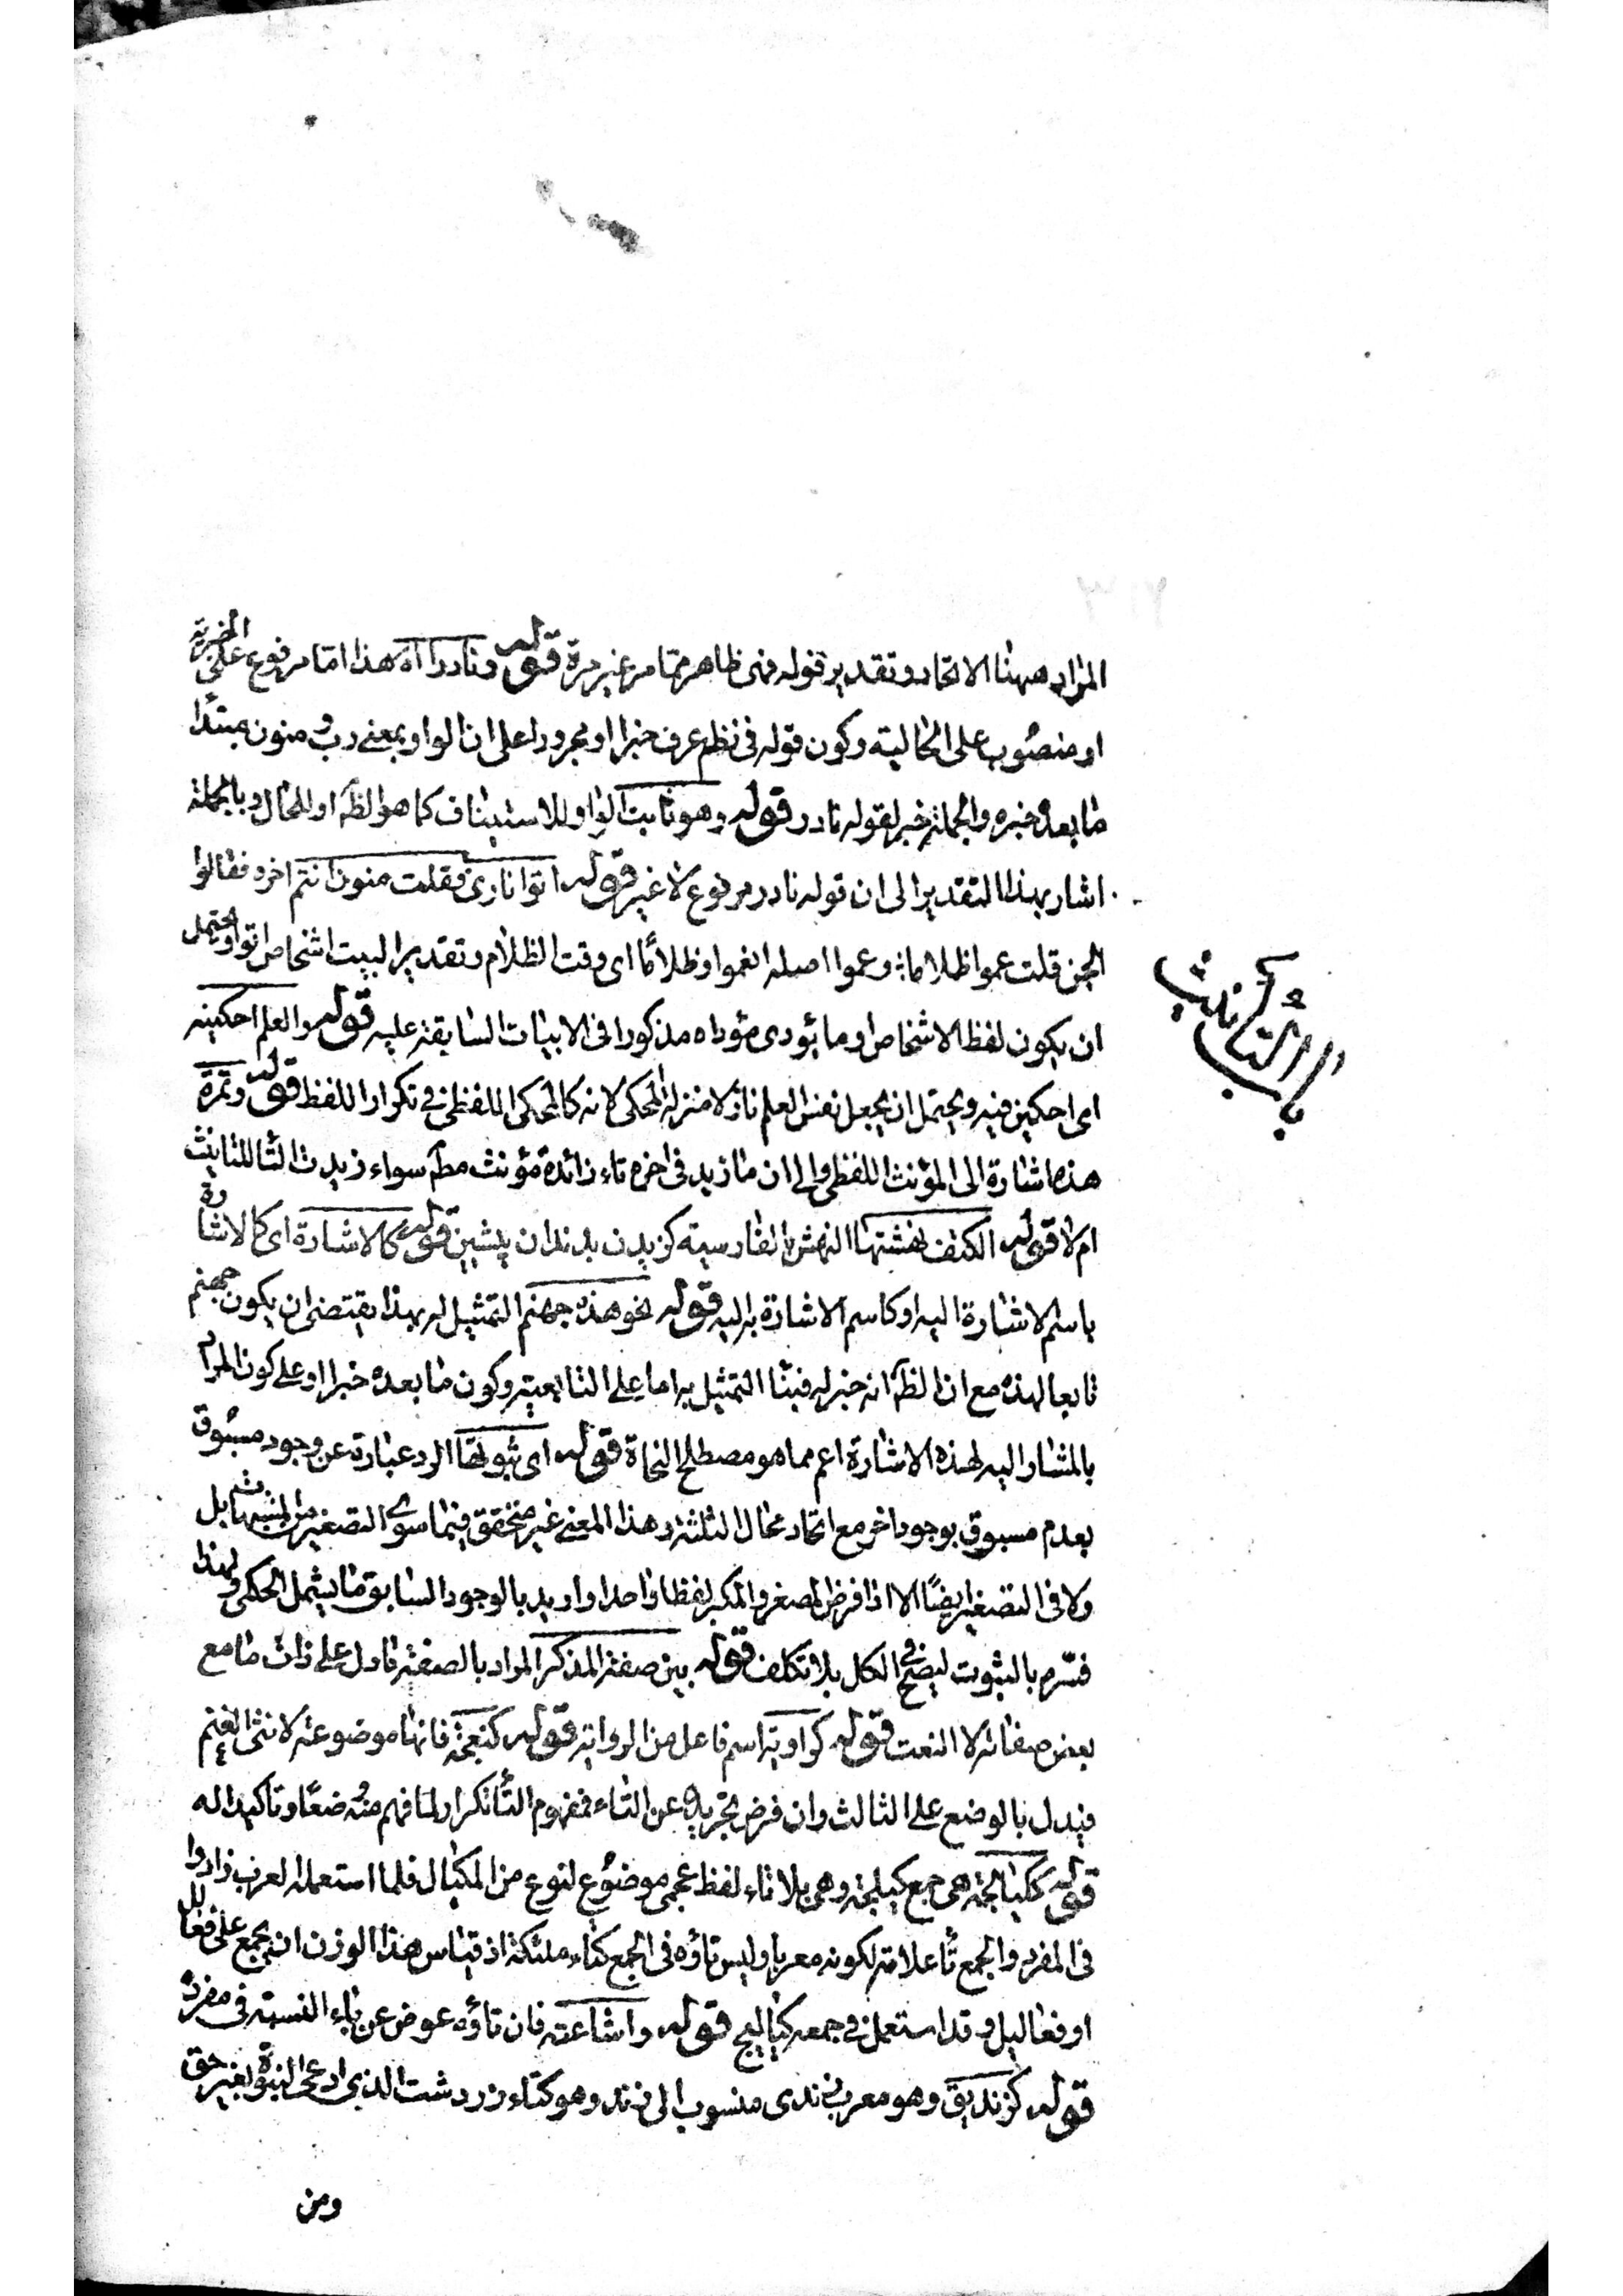 المراد ههنا الاتحاد وتقدير قوله فمى ظاهر مما مر غير مرة قوله ونادرا اه هذا اما مرفوع على الخبرية
او منصوب على الحالية وكون قوله فى نظم عرف خبرا او مجرورا على ان الواو بمعنى رب ومنون مبتدا
ما بعده خبره والجملة خبر لقوله نادر قوله وهو ثابت الواو للاستيناف كما هو الظ او للحال وبالجملة
اشار بهذا التقدير الى ان قوله نادر مرفوع لا غير قوله اتوا نارى فقلت منون انتم اخره فقالوا
الجن قلت عموا ظلاما وعموا اصله انعموا وظلاما اى وقت الظلام وتقدير البيت اشخاص اتوا ويحتمل
ان يكون لفظ الاشخاص او ما يؤدى مؤداه مذكورا فى الابيات السابقة عليه قوله والعلم احكينه
اى احكين فيه ويحتمل ان يجعل نفس العلم نازلا منزلة المحكى لانه كالمحكى اللفظى فى تكرار اللفظ قوله وتمرة
هذه اشارة الى المؤنث اللفظى والى ان ما زيد فى اخره تاء زائدة مؤنث مط سواء زيدت التا للتانيث
ام لا قوله الكتف نهشتها النهش بالفارسية كزيدن بدندان پيشين قوله كالاشارة اى كالاشارة
باسم الاشارة اليه او كاسم الاشارة به اليه قوله نحو هذه جهنم التمثيل له بهذا يقتضى ان يكون جهنم
تابعا لهذه مع ان الظ انه خبر له فبنا التمثيل به اما على التابعية وكون ما بعده خبرا او على كون المراد
بالمشار اليه لهذه الاشارة اعم مما هو مصطلح النحاة قوله اى ثبوتها الرد عبارة عن وجود مسبوق
بعدم مسبوق بوجود اخر مع اتحاد محال الثلثة وهذا المعنى غير متحقق فيما سوى التصغير من المثبهات بل
ولا فى التصغير ايضا الا اذا فرض المصغر والمكبر لفظا واحدا واريد بالوجود السابق ما يشمل الحكمى ولهذا
فسره بالثبوت ليصح فى الكل بلا تكلف قوله بين صفة المذكر المراد بالصفة ما دل على ذات ما مع
بعض صفاته لا النعت قوله كراوية اسم فاعل من الرواية قوله كنعجة فانها موضوعة لانثى الغنم
فيدل بالوضع على الثالث وان فرض تجريده عن التاء فمفهوم التا تكرار لما فهم منه ضمنا وتاكيدا له
قوله ككيالجة هى جمع كيلجة وهى بلا تاء لفظ عجمى موضوع لنوع من المكيال فلما استعمله العرب زادوا
فى المفرد والجمع تا علامة لكونه معربا وليس تاؤه فى الجمع كتاء ملئكة اذ قياس هذا الوزن ان يجمع على فعالل
او فعاليل وقد استعمل فى جمعه كياليج قوله واشاعثه فان تاؤه عوض عن ياء النسبة فى مفرده
قوله كزنديق وهو معرب زندى منسوب الى زند وهو كتاب زردشت الذى ادعى النبوة بغير حق
ومن
باب التأنيث